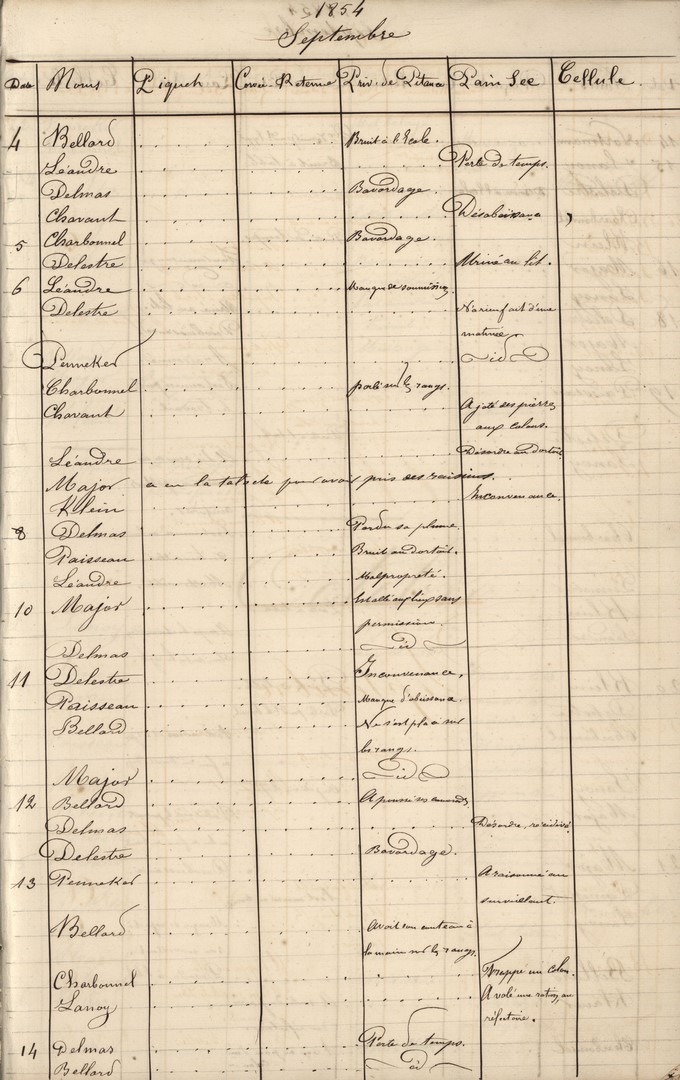 1854
Septembre
Date Noms Piquet Corvée-Retenue Priv. de Pitance Pain Sec Cellule.
4 Bellard Bruit à l'Ecole.
Léandre Perte de temps.
Delmas Bavardage
Chavant Désobéissance
5 Charbonnel Bavardage.
Delestre Uriné au lit.
6 Léandre Manque de soumission
Delestre N'a rien fait d'une
matinée
Penneker id
Charbonnel parlé sur les rangs.
Chavant A jeté des pierres
aux colons.
Léandre Désordre au dortoir
Major a eu la pour avoir pris des raisins.
Klein Inconvenance.
8 Delmas Perdu sa plume.
Paisseau Bruit au dortoir.
Léandre Malpropreté.
10 Major Est allé aux lieux sans
permission.
Delmas id
11 Delestre Inconvenance.
Paisseau Manque d'obéissance.
Bellard Ne s'est pas sur
les rangs.
Major id
12 Bellard A poussé ses camarades
Delmas Désordre, récidive.
Delestre Bavardage.
13 Penneker A raisonné au
surveillant.
Bellard Avait son couteau à
la main sur les rangs.
Charbonnel Frappé un colon.
Lanoy A volé une ration au
réfectoire.
14 Delmas Perte de temps.
Bellard id